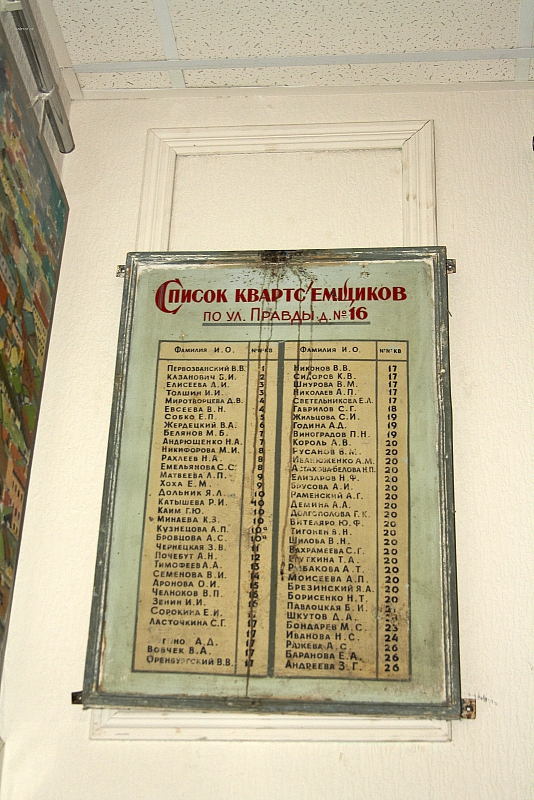 Список квартс'емщиков
по ул. Правды д. №16
Фамилия И.О. №№ КВ
Первозванский В.В. 1
Казанович Б.И. 2
Елисеева Л.И. 3
Толшин И.И. 3
Миротворцева Д.В. 4
Евсеева В.Н. 4
Собко Е.П. 5
Жердецкий В.А. 6
Белянов М.Б. 7
Андрющенко Н.А. 7
Никифорова М.И. 8
Рахлеев Н.А. 8
Емельянова С.С. 8
Матвеева Л.П. 9
Хоха Е.М. 9
Дольник Я.Л. 10
Катышева Р.И. 10
Каим Г.Ю. 10
Минаева К.З. 10
Кузнецова А.П. 10а
Бровцова А.С. 10а
Чернецкая З.В. 11
Почебут А.Н. 12
Тимофеев А.А. 13
Семенова В.И. 14
Аронова О.И. 15
Челноков В.П. 16
Зенин И.И. 16
Сорокина Е.И.
Ласточкина С.Г. 17
17
А.Д. 17
Вовчек В.А. 17
Оренбургский В.В. 17
Фамилия И.О. №№ КВ
Никонов В.В. 17
Сидоров К.В. 17
Шнурова В.М. 17
Николаев А.П. 17
Светельникова Е.Л. 17
Гаврилов С.Г. 18
Жильцова С.И. 19
Година А.Д. 19
Виноградов П.Н. 19
Король А.В. 20
Русанов В.М. 20
Иванюженко А.М. 20
Астахова-Белова Н.П. 20
Елизаров Н.Ф. 20
Брусова А.И. 20
Раменский А.Г. 20
Демина А.А. 20
Долгополова Г.К. 20
Бителяро Ю.Ф. 20
Тигонен В.Н. 20
Шилова В.Н. 20
Вахрамеева С.Г. 20
Т.А. 20
А.Т. 20
Моисеева А.П. 20
Брезинский Я.А. 20
Борисенко Н.Т. 20
Павлоцкая Б.И. 21
Шкутов Д.А.
Бондарев М.С. 23
Иванова Н.С. 24
Ражева А.С. 26
Баранова Е.А. 26
Андреева З.Г. 26